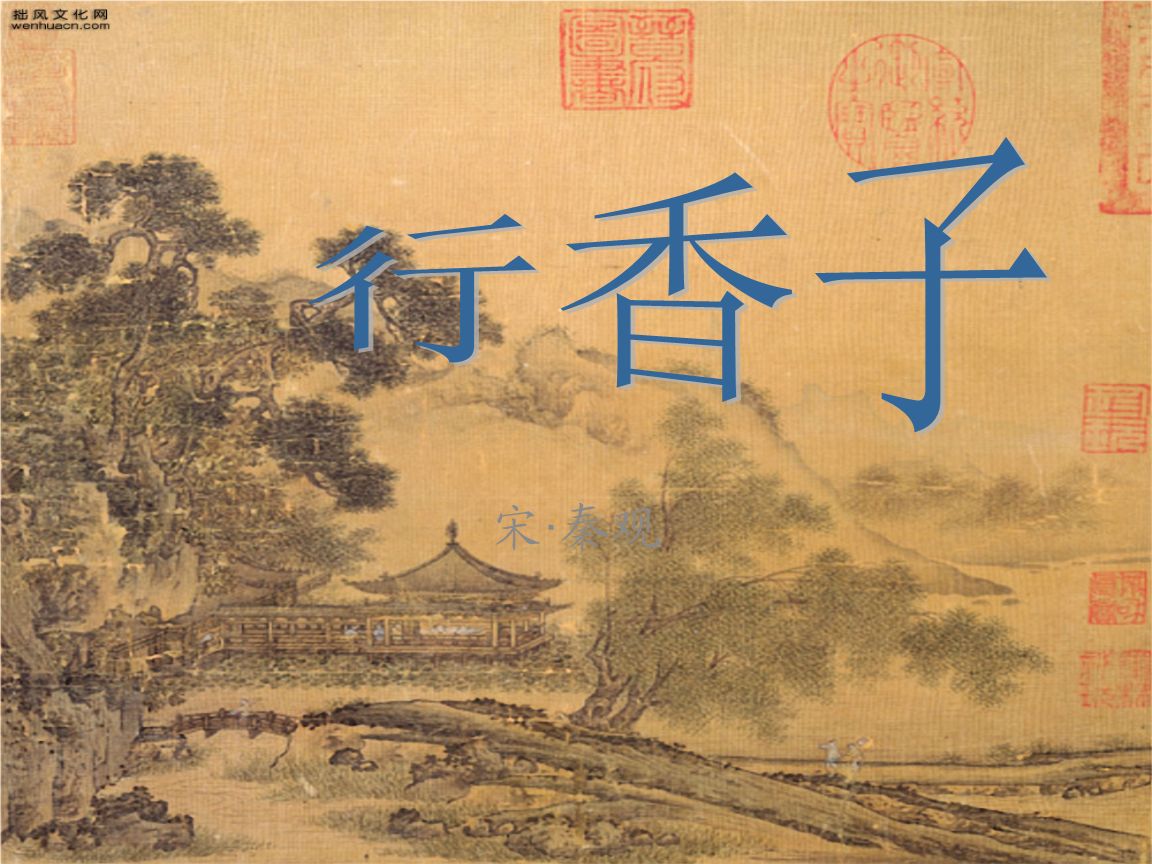 拙风文化网
wenhuacn.com
行香子
宋·秦观